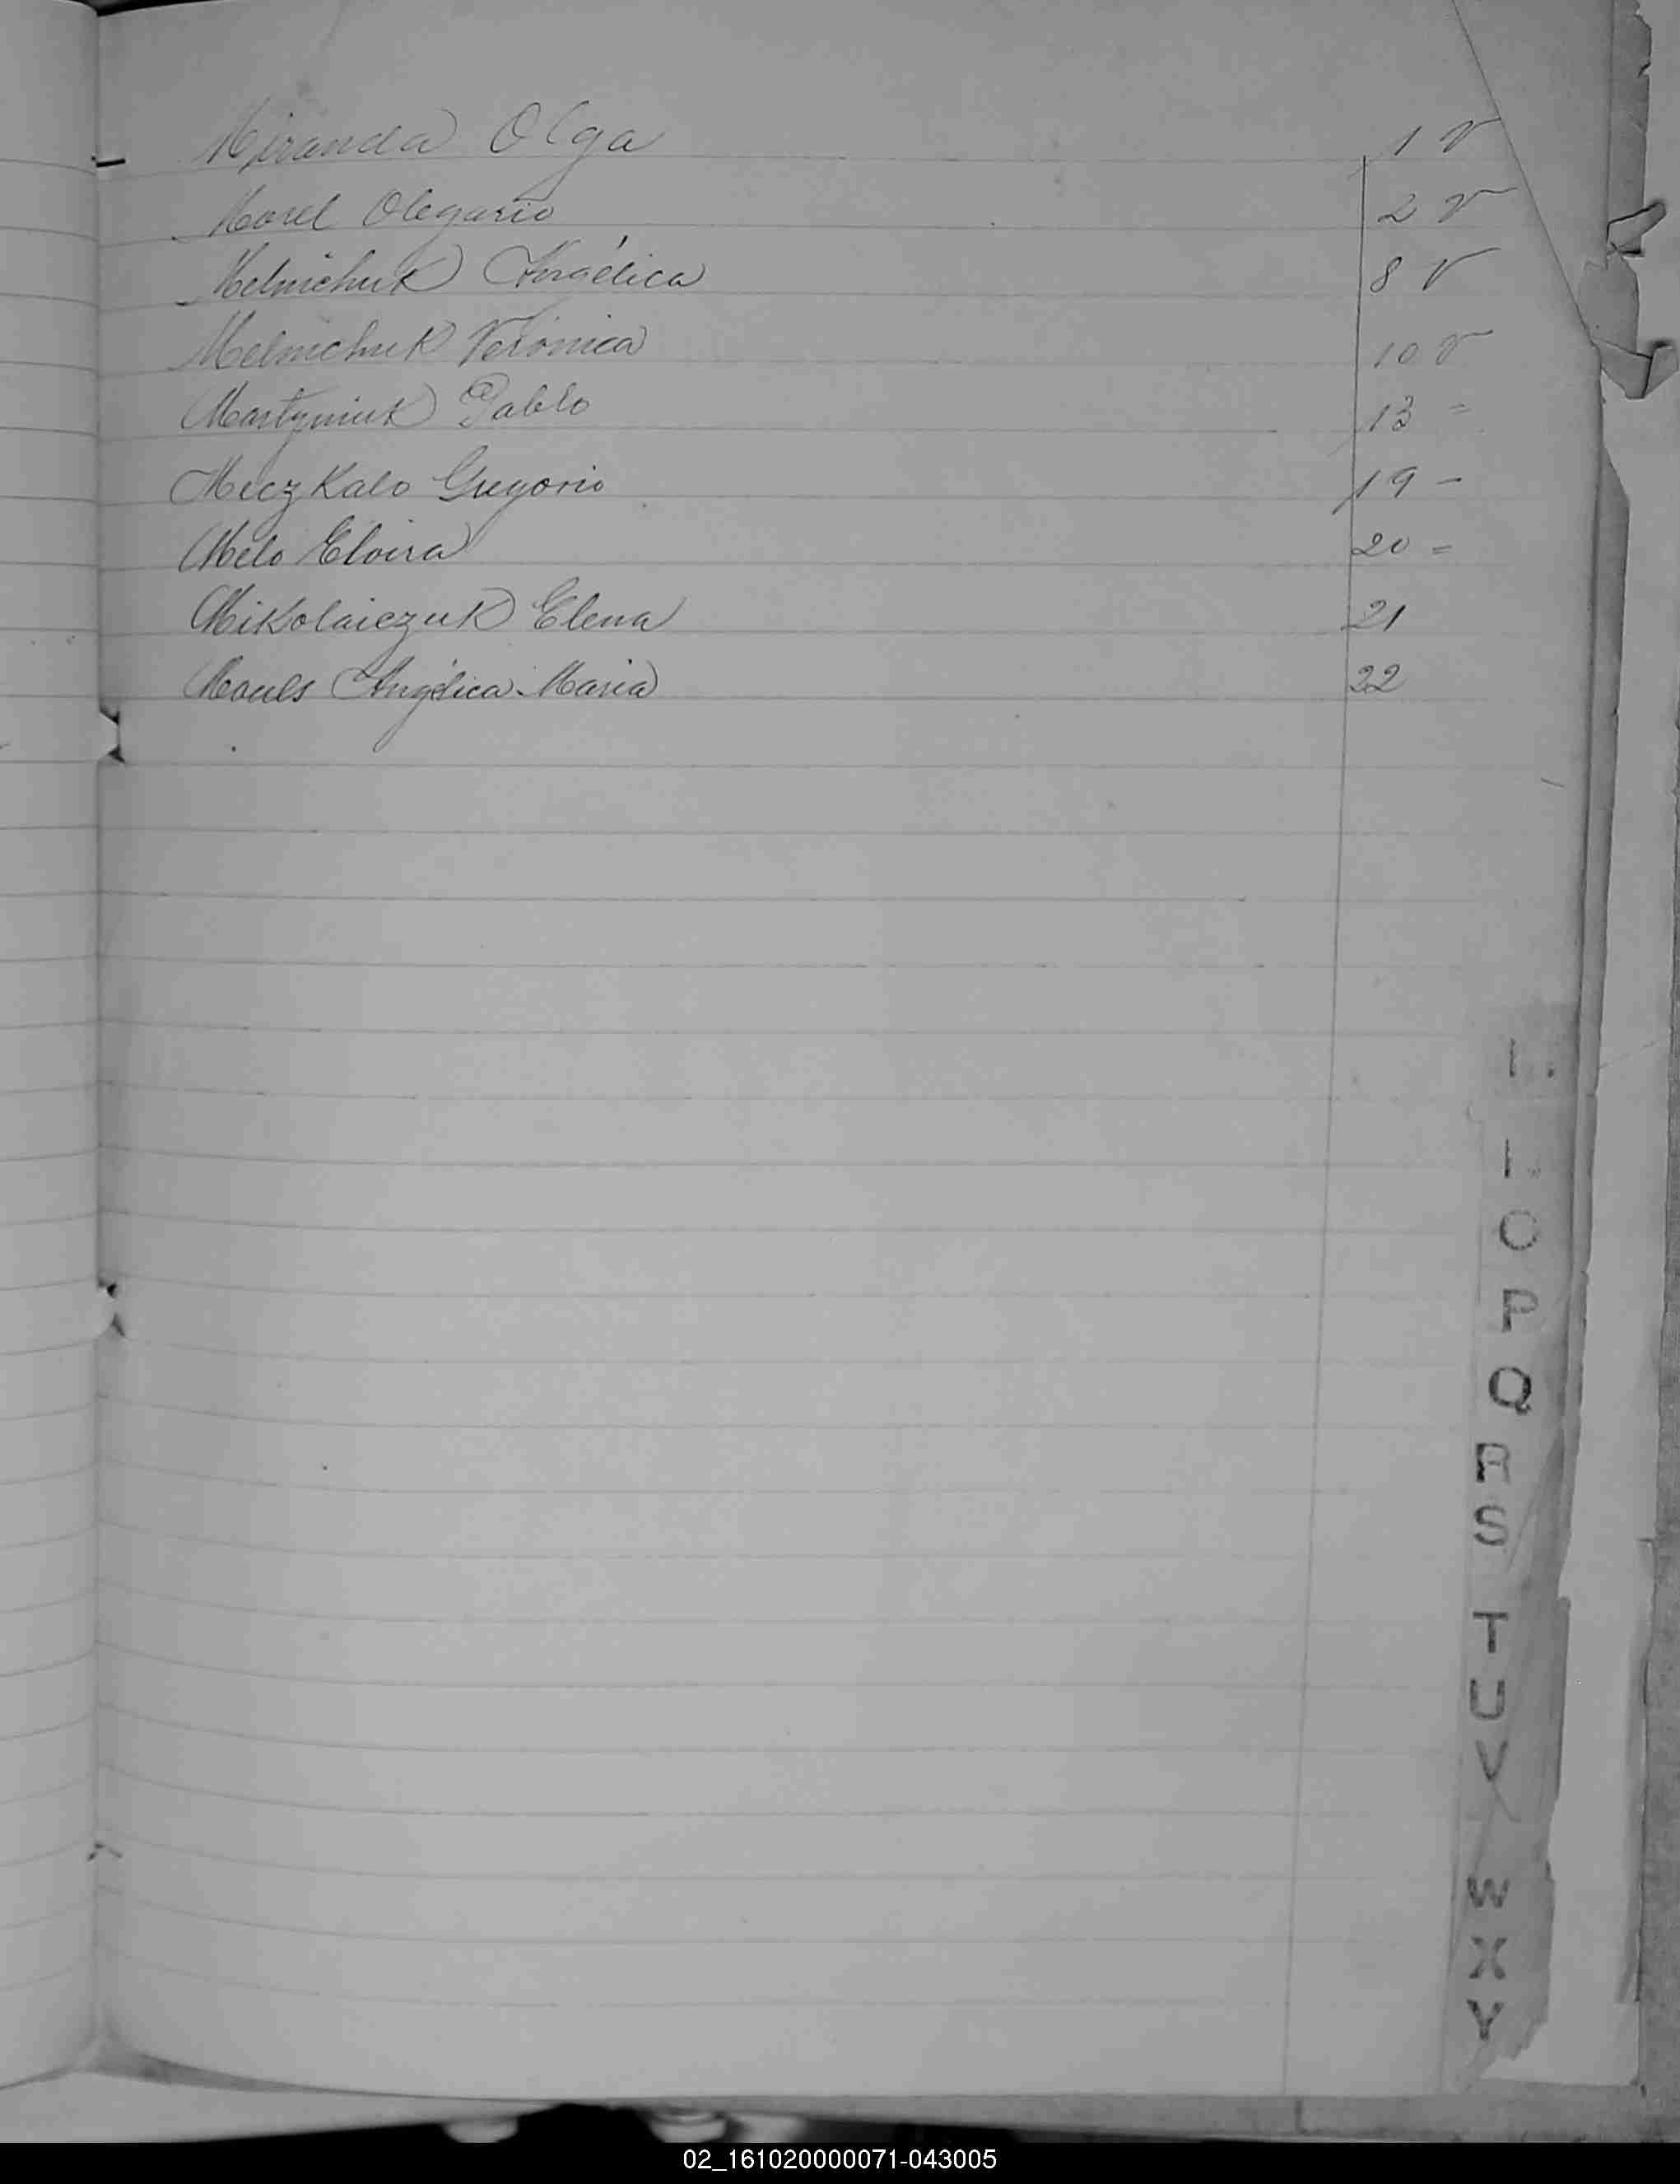 Miranda Olga 1 v
Morel Olegario 2 v
Melnichuk Angélica 8 v
Melnichuk Verónica 10 v
Martyniuk Pablo 13 =
Meczkalo Gregorio 19 -
Melo Eloira 20 =
Mikolaiczuk Elena 21
Angélica María 22
O
P
Q
R
S
T
U
V
W
X
Y
02_161020000071-043005